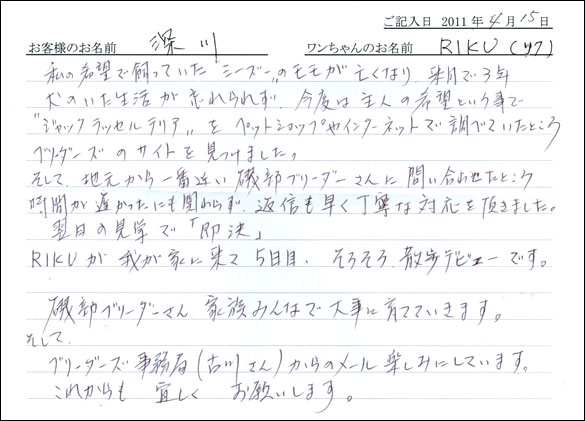 ご記入日 2011年4月15日
お客様のお名前 深川 ワンちゃんのお名前 RIKU(リク)
私の希望で飼っていた"シーズー"のモモが亡くなり、来月で3年
犬のいた生活が忘れられず、今度は主人の希望という事で
"ジャックラッセルテリア"をペットショップやインターネットで調べていたところ
ブリーダーズのサイトを見つけました。
そして、地元から一番近い磯部ブリーダーさんに問い合わせたところ
時間が遅かったにも関わらず、返信も早く丁寧な対応を頂きました。
翌日の見学で「即決」
RIKUが我が家に来て5日目、そろそろ散歩デビューです。
磯部ブリーダーさん、家族みんなで大事に育てていきます。
そして、
ブリーダーズ事務局(古川さん)からのメール楽しみにしています。
これからも宜しくお願いします。